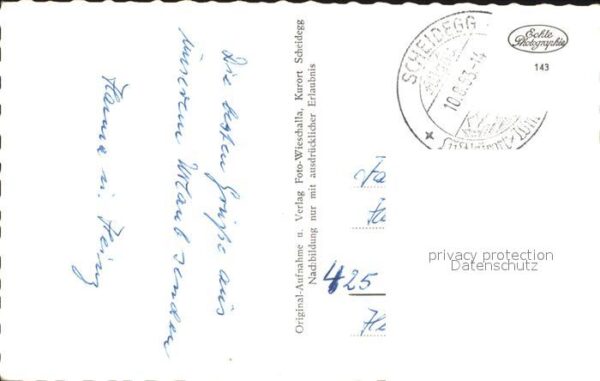 Die besten Grüße aus
unserem Urlaub senden
Hanna u. Heinz
Original-Aufnahme u. Verlag Foto-Wieschalla, Kurort Scheidegg
Nachbildung nur mit ausdrücklicher Erlaubnis
SCHEIDEGG
10.8.63-14
Echte
Photographie
143
Fa
425
privacy protection
Datenschutz